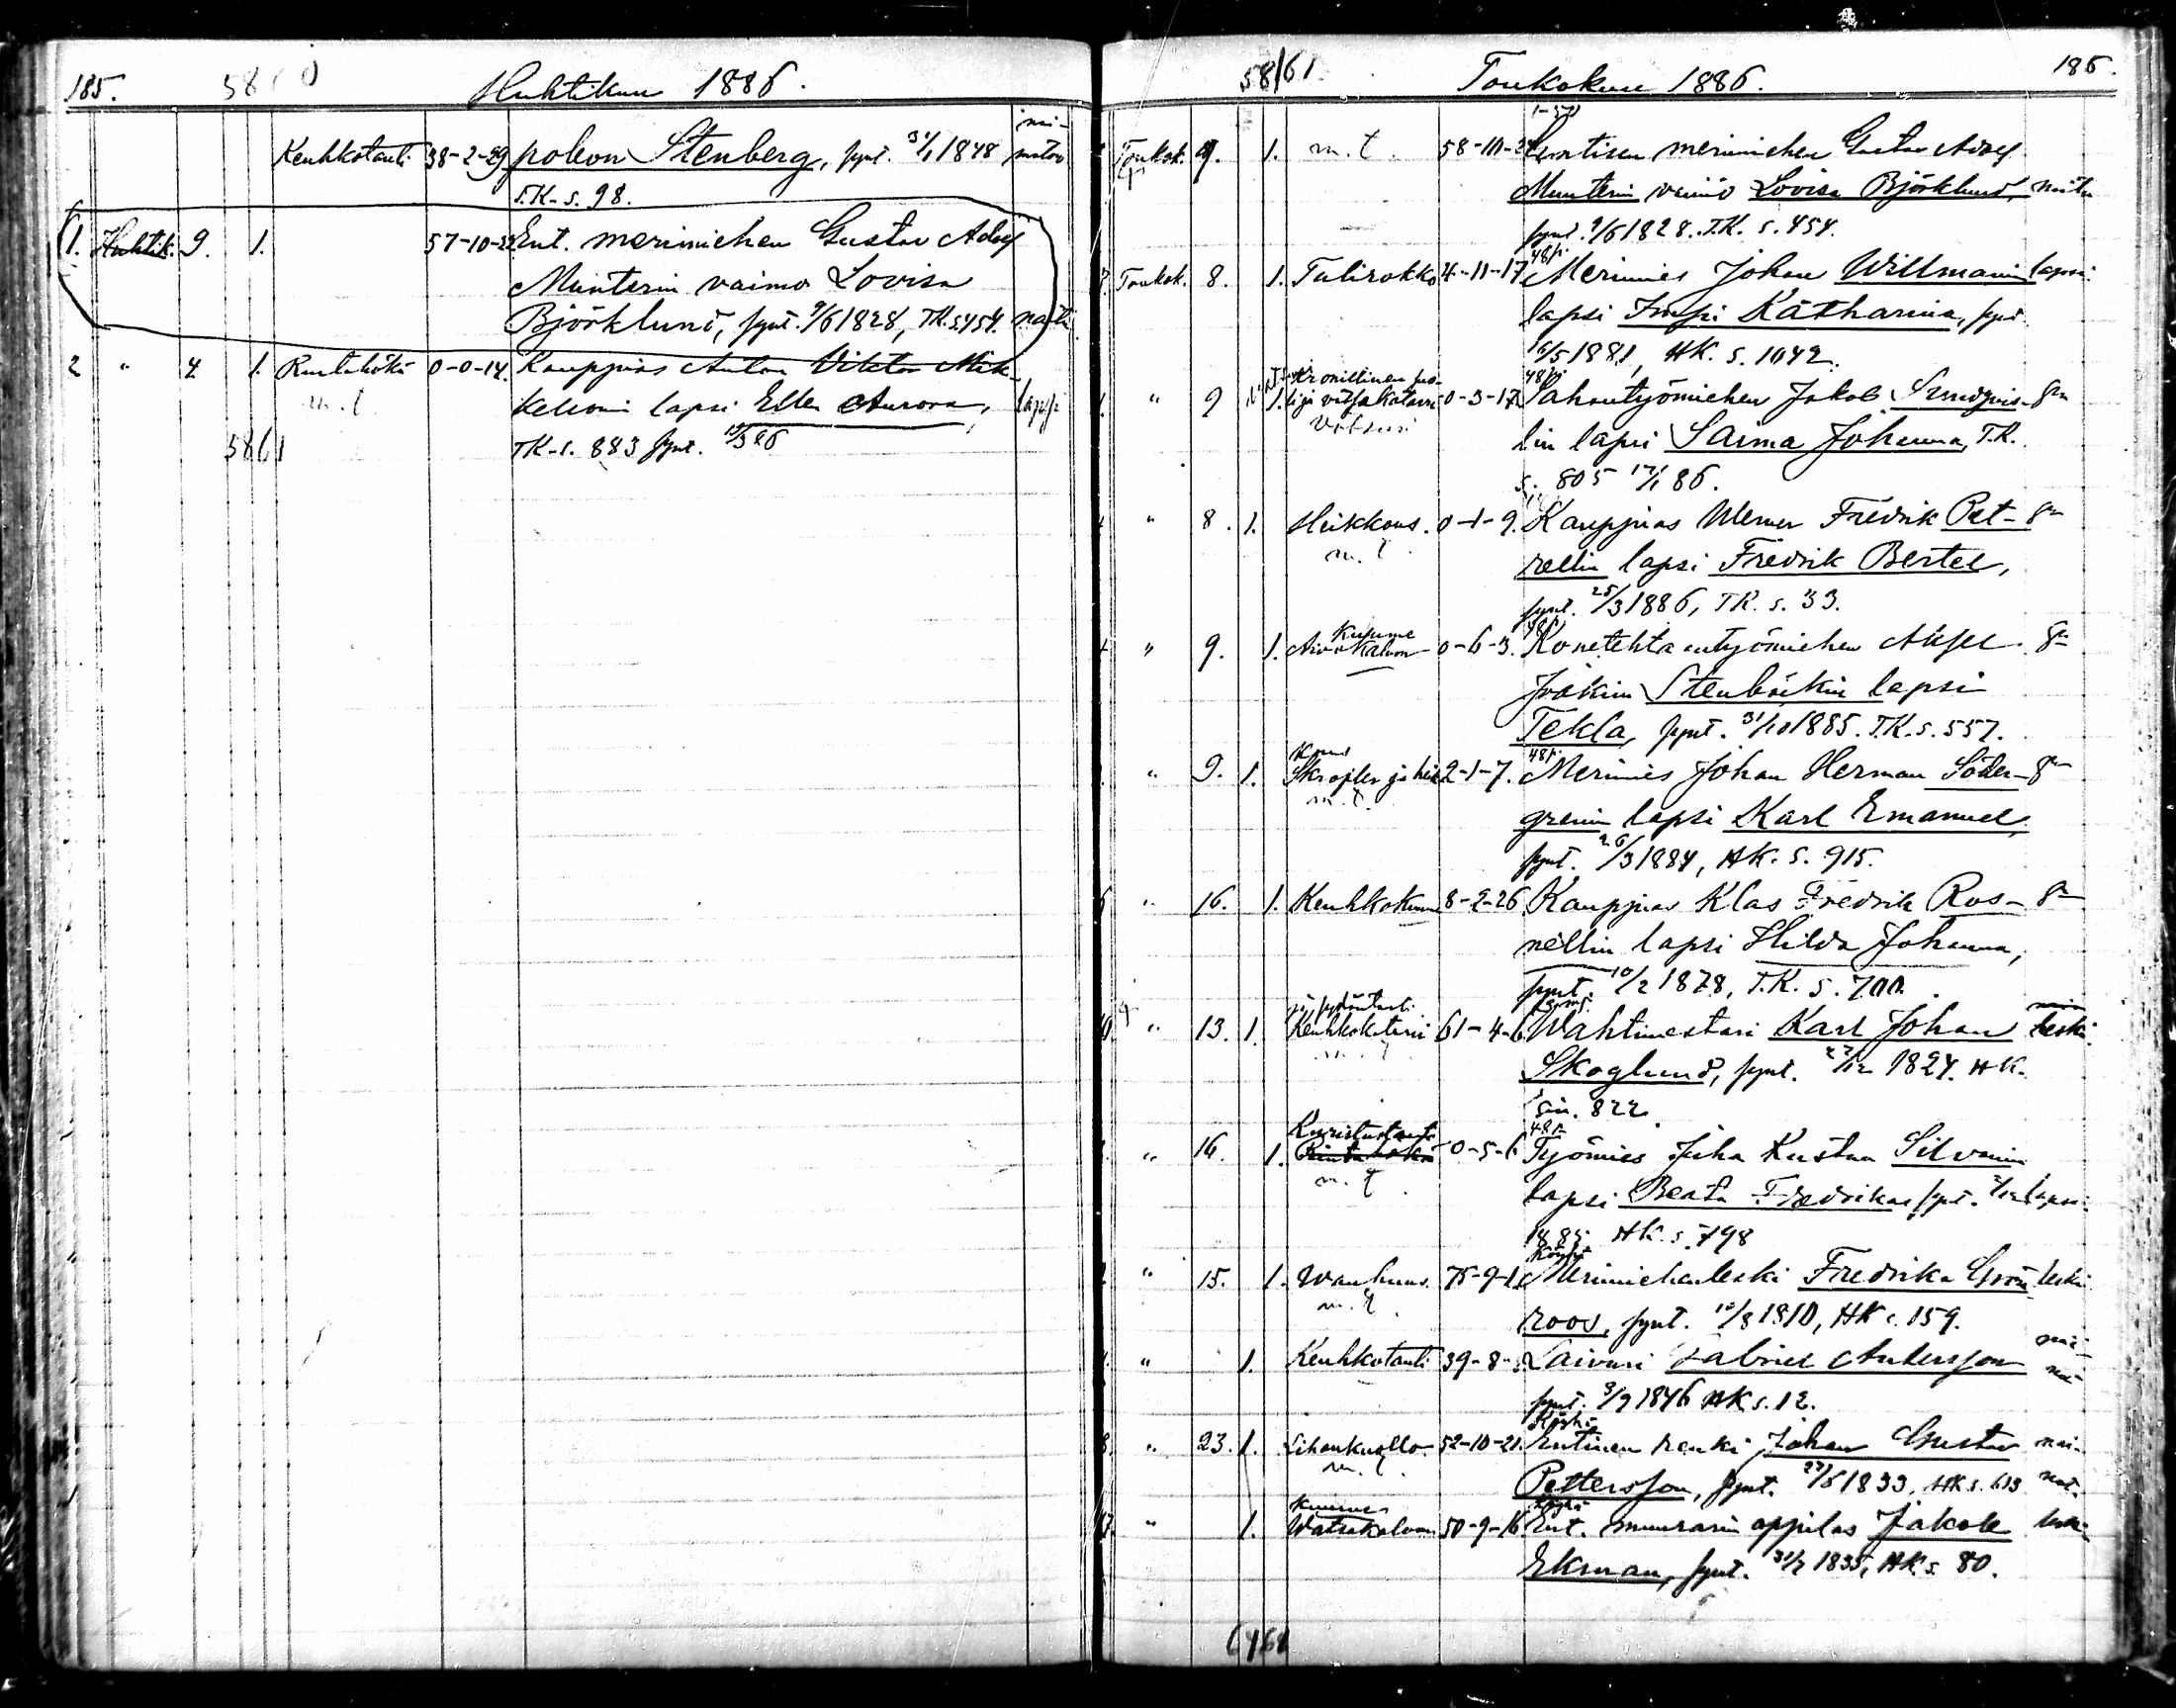 185. 58 Huhtikuu 1886.
Keuhkotauti 38-2-29 poleon Stenberg, synt. 31/1 1848 nai-
matoo
T.K. s. 98.
1. Huhtik. 9. 1. 57-10- Ent. merimiehen Gustav Adolf
Munterin vaimo Lovisa
Björklund, synt. 9/6 1828, TK. s. 454. naitu
2 " 4 1. Rintahökä 0-0-14. Kauppias Anton Viktor Mik-
m. t. kelsonin lapsi Ellen Aurora, lapsi
5861 TK. s. 883 synt. 19/3 86
58/61. Toukokuu 1886. 186.
Toukok. 9. 1. m. t. 58-10- Entisen merimiehen Gustav Adolf
Munterin vaimo Lovisa Björklund, naitu
synt. 9/6 1828. T.K. s. 454.
48 p
Toukok. 8. 1. Tulirokko 4-11-17 Merimies Johan Willmanin lapsi
lapsi Impi Katharina, synt.
/5 1881, HK. s. 1042.
" 9 1. 0-3-17 Sahantyömiehen Jakob Sundqvis-
lin lapsi Saima Johanna, T.K.
s. 805 17/1 86.
" 8. 1. Heikkous. 0-1-9. Kauppias Werner Fredrik Pet-
m. t. rellin lapsi Fredrik Bertel,
synt. 25/3 1886, TK. s. 33.
kuume
" 9. 1. Aivokalvon 0-6-3. Konetehtaantyömiehen Aksel
Joakim Stenbäckin lapsi
Tekla, synt. 31/10 1885. T.K. s. 557.
48 p.
" 9. 1. Skrofler ja 2-1-7. Merimies Johan Herman Söder-
m. t. grenin lapsi Karl Emanuel,
synt. 26/3 1884, HK. s. 915.
" 16. 1. Keuhkokuume 8-2-26 Kauppias Klas Fredrik Ros-
nellin lapsi Hilda Johanna,
synt. 10/2 1878, T.K. s. 700.
ja sydäntauti
" 13. 1. Keuhkokatarri 61-4-6 Wahtimestari Karl Johan leski.
m. t. Skoglund, synt. 27/12 1824. HK.
siv. 822.
Kuristustauti 48 p.
" 16. 1. Rintahökä 0-5-6 Työmies Juha Kustaa Silvanin
m. t. lapsi Beata Fredrika, synt. lapsi
1885 HK. s. 798
Köyhä
" 15. 1. Wanhuus. 75-9- Merimiehenleski Fredrika Grön leski
m. t. roos, synt. 10/8 1810, HK s. 159.
" 1. Keuhkotauti 39-8- Laivuri Gabriel Andersson nai-
synt. 3/9 1846 HK s. 12. nut
Köyhä
" 23. 1. Lihankuollo 52-10-21. Entinen renki Johan Gustav nai-
m. t. Pettersson, synt. 27/6 1833, HK s. 613 nut.
kuume Köyhä
" 1. Watsakalvon 50-9-16. Ent. muurarin oppilas Jakob
Ekman, synt. 31/7 1835, HK s. 80.